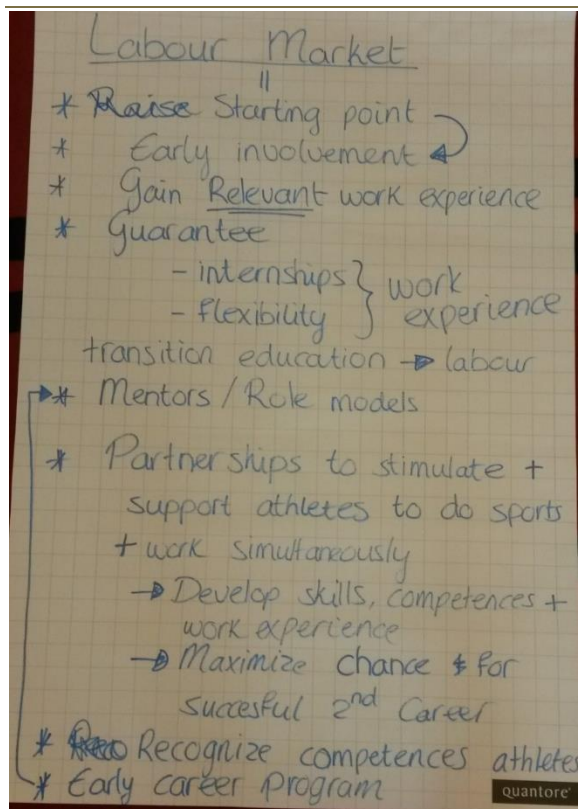 Labour Market
* Raise Starting point
* Early involvement
* Gain Relevant work experience
* Guarantee
- internships } work
- flexibility } experience
transition education → labour
* Mentors / Role models
* Partnerships to stimulate +
support athletes to do sports
+ work simultaneously
→ Develop skills, competences +
work experience
→ Maximize chance for
succesful 2nd Career
* Recognize competences athletes
* Early career program
quantore